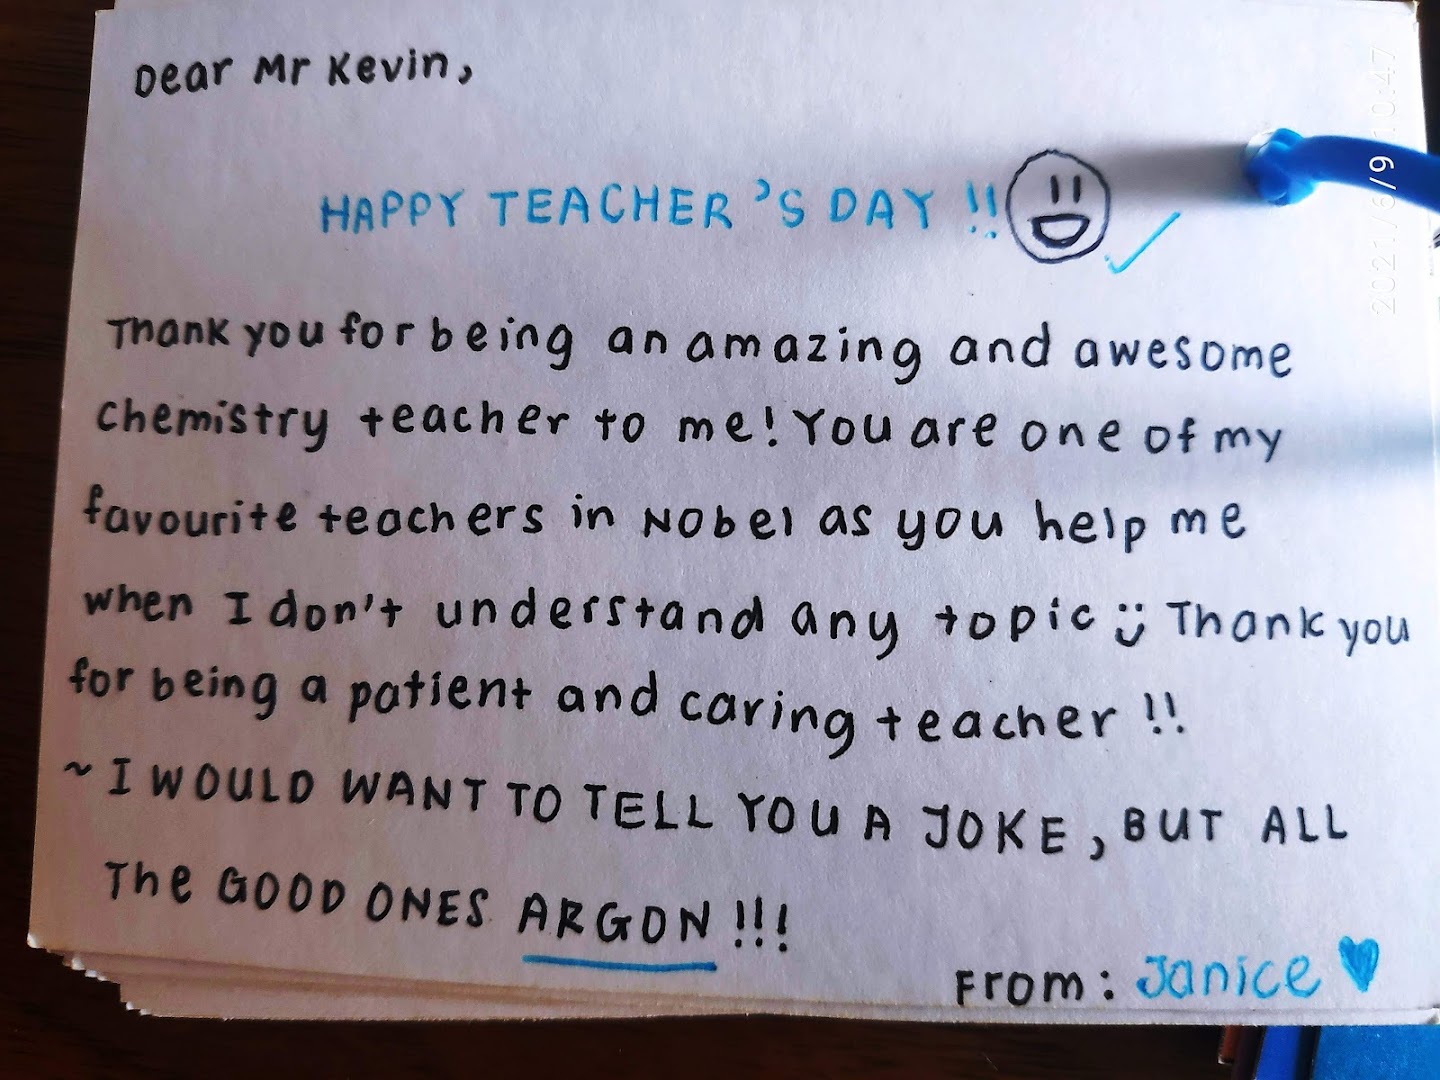 Dear Mr Kevin,
HAPPY TEACHER'S DAY !!
Thank you for being an amazing and awesome
chemistry teacher to me! You are one of my
favourite teachers in Nobel as you help me
when I don't understand any topic :) Thank you
for being a patient and caring teacher !!
~ I WOULD WANT TO TELL YOU A JOKE, BUT ALL
The GOOD ONES ARGON !!!
From: Janice ♥
2021/6/9 10:47